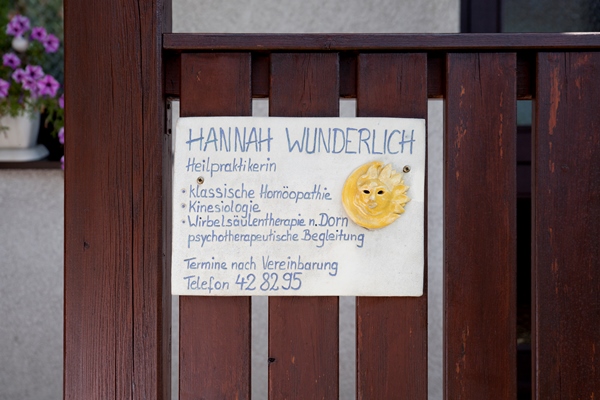 HANNAH WUNDERLICH
Heilpraktikerin
* klassische Homöopathie
* Kinesiologie
* Wirbelsäulentherapie n. Dorn
psychotherapeutische Begleitung
Termine nach Vereinbarung
Telefon 42 82 95